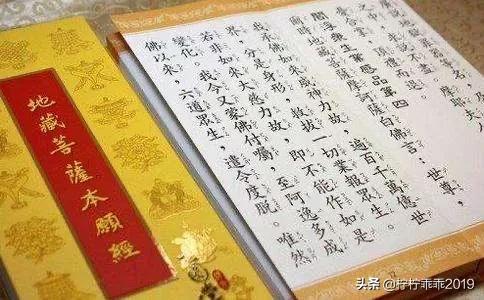 地藏菩薩本願經
憂合掌，頂禮而退。
閻浮眾生業感品第四
爾時地藏菩薩摩訶薩白佛言：世尊，
我承佛如來威神力故，遍百千萬億世
界，分是身形，救拔一切業報眾生。
若非如來大慈力故，即不能作如是
變化。我今又蒙佛付囑，至阿逸多成
佛以來，六道眾生，遣令度脫。唯然
头条 @柠柠乖乖2019